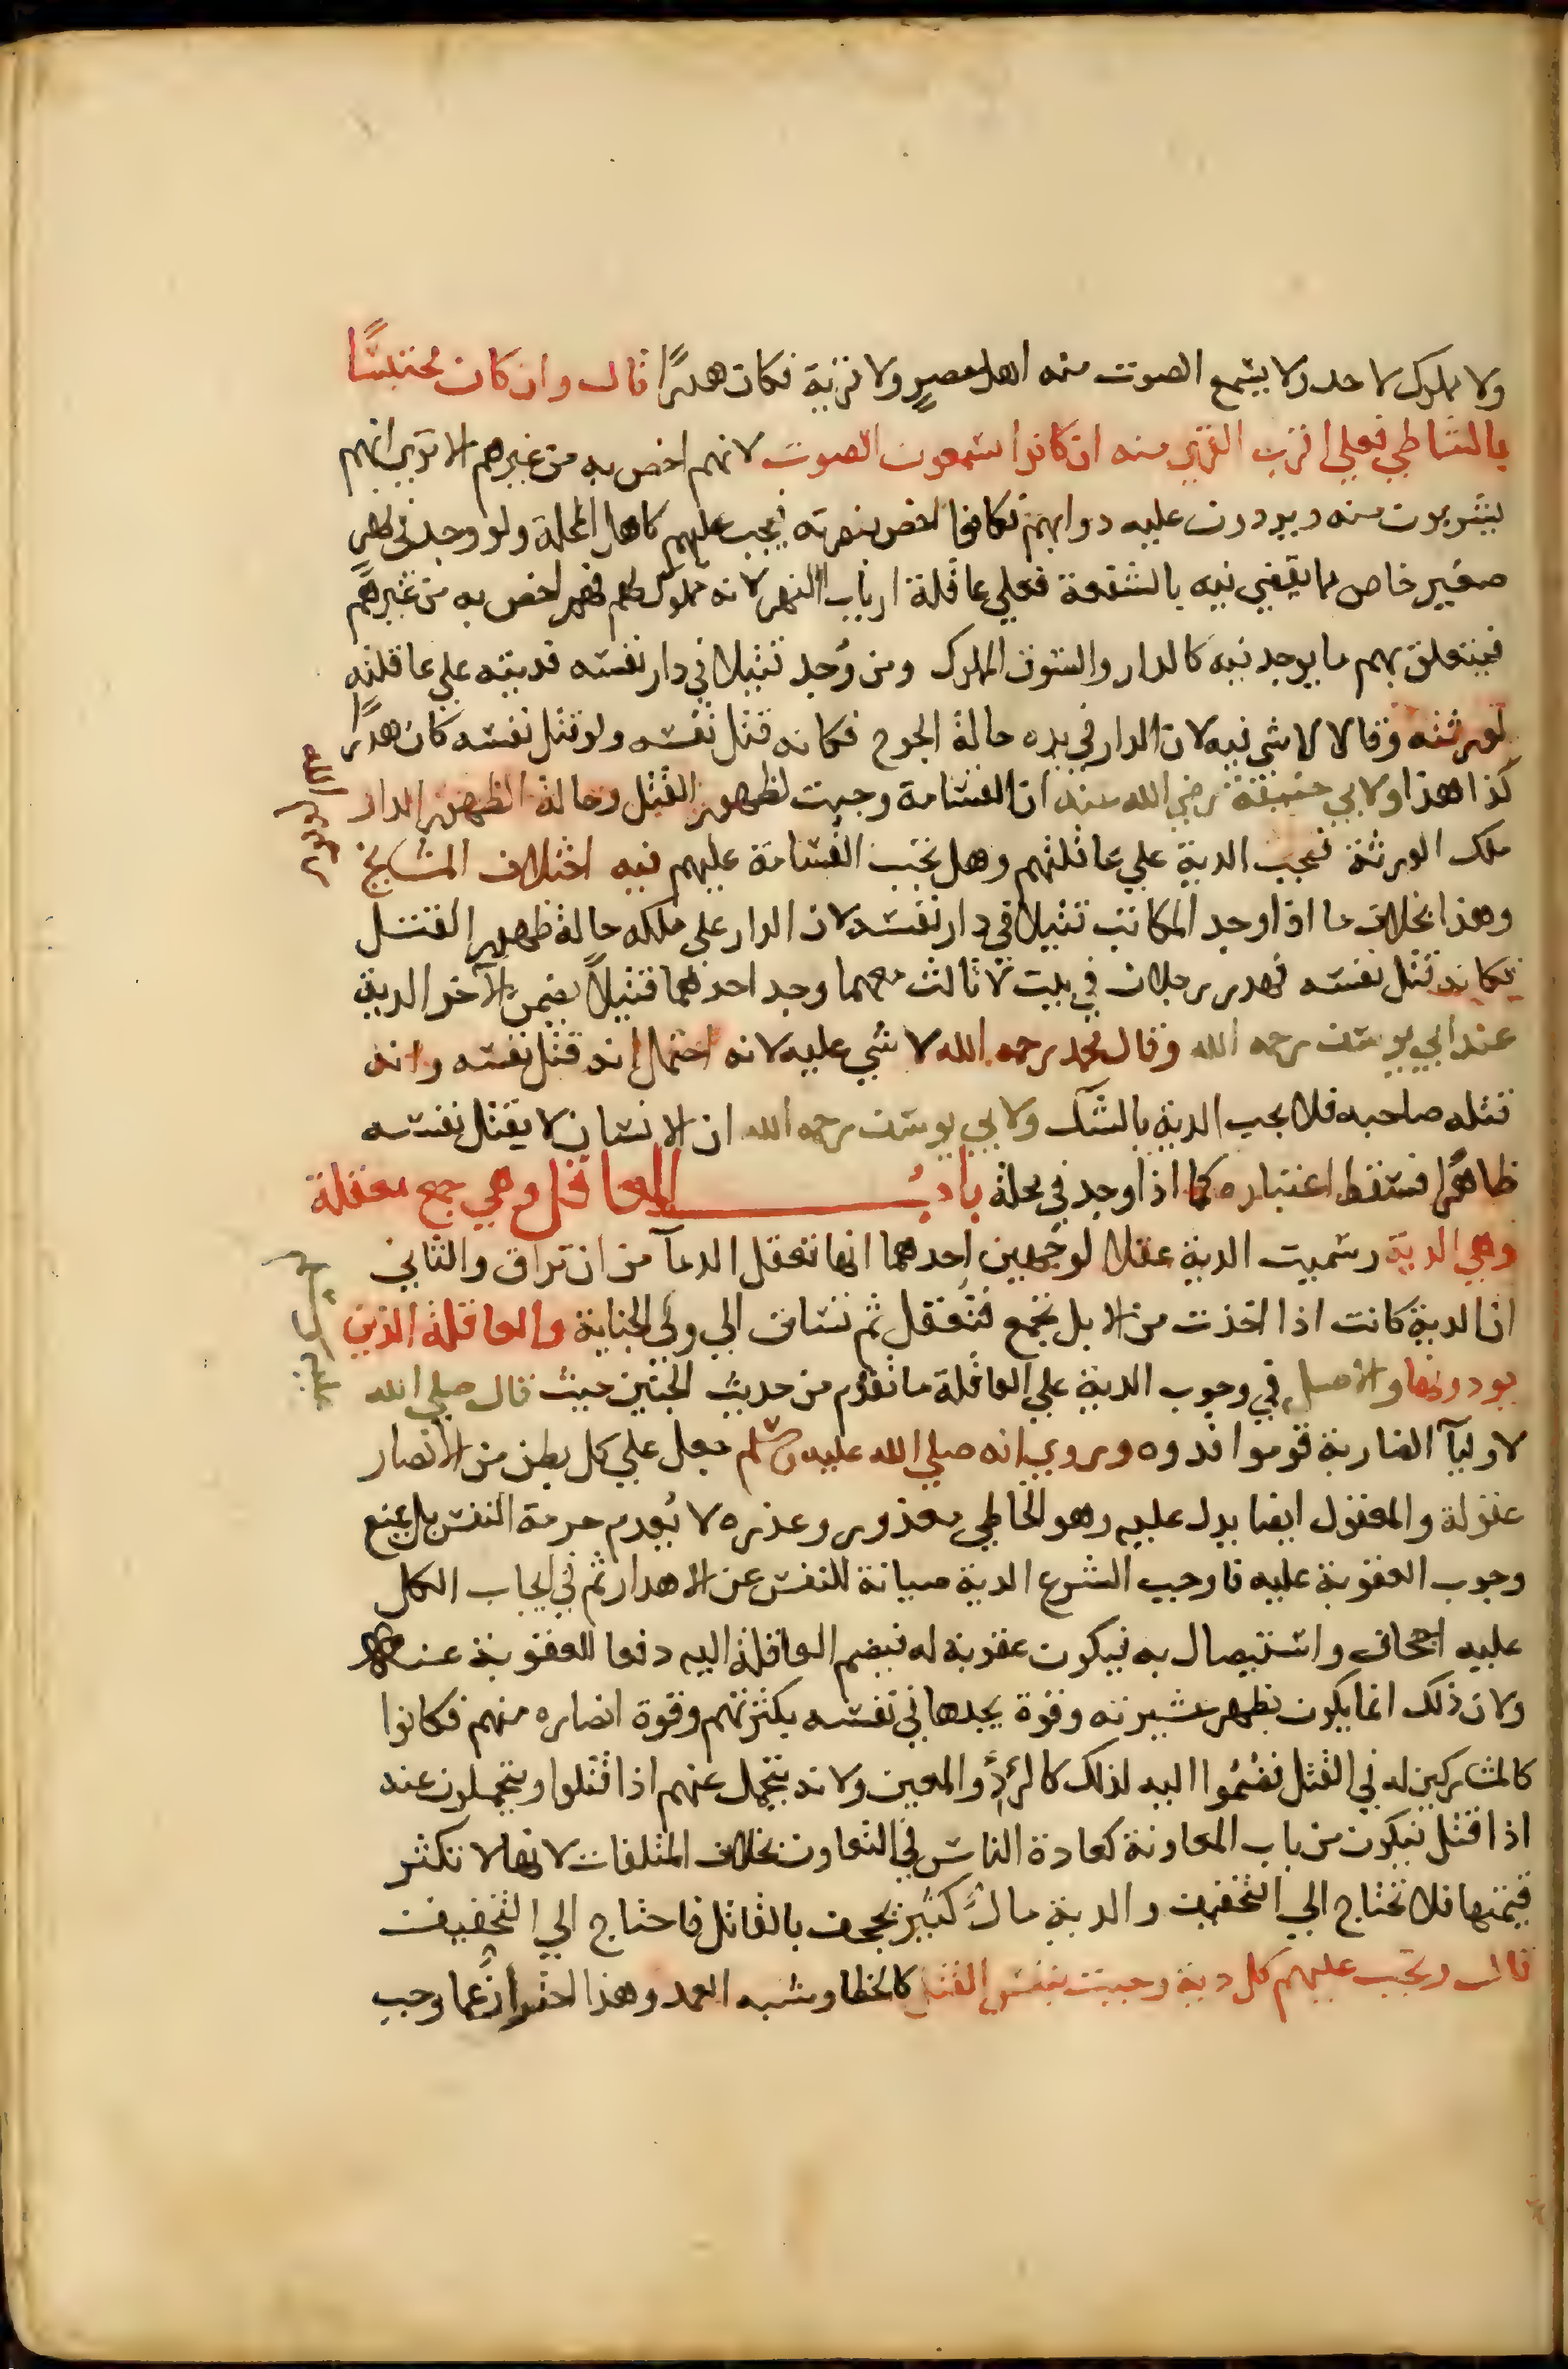 ولا مملوك لاحد ولا يسمع الصوت منه اهل مصرٍ ولا قرية فكان هدرًا قال وان كان محتبسًا
بالشاطي فعلي اقرب القري منه ان كانوا يسمعون الصوت لانهم اخص به من غيرهم الا تري انهم
يشربون منه ويوردون عليه دوابهم فكانوا اخص بنصرته فيجب عليهم كاهل المحلة ولو وجد في نهر
صغير خاص مما يقضي فيه بالشفعة فعلي عاقلة ارباب النهر لانه مملوك لهم فهم اخص به من غيرهم
فيتعلق بهم ما يوجد فيه كالدار والسوق المملوك ومن وُجد قتيلا في دار نفسه فديته علي عاقلته
لورثته وقالا لا شي فيه لان الدار في يده حالة الجرح فكانه قتل نفسه ولو قتل نفسه كان هدرًا
كذا هذا ولابي حنيفة رضي الله عنه ان القسامة وجبت لظهور القتل وحالة الظهور الدار
ملك الورثة فتجب الدية علي عاقلتهم وهل تجب القسامة عليهم فيه اختلاف المشايخ
وهذا بخلاف ما اذا وجد المكاتب قتيلا في دار نفسه لان الدار علي ملكه حالة ظهور القتل
فكانه قتل نفسه فهدر رجلان في بيت لا ثالث معهما وجد احدهما قتيلاً يضمن الآخر الدية
عند ابي يوسف رحمه الله وقال محمد رحمه الله لا شي عليه لانه احتمل انه قتل نفسه وانه
قتله صاحبه فلا يجب الدية بالشك ولابي يوسف رحمه الله ان الانسان لا يقتل نفسه
ظاهرًا فسقط اعتباره كما اذا وجد في محلة بابُ المعاقل وهي جمع معقلة
وهي الدية وسميت الدية عقلا لوجهين احدهما انها تعقل الدمآ من ان تراق والثاني
ان الدية كانت اذا اخذت من الابل تجمع فتعقل ثم تساق الي ولي الجناية والعاقلة الذين
يودونها والاصل في وجوب الدية علي العاقلة ما تقدم من حديث الجنين حيث قال صلي الله
لاوليآ الضاربة قوموا فدوه وروي انه صلي الله عليه وسلم جعل علي كل بطن من الانصار
عقولة والمعقول ايضا يدل عليه وهو الخاطي معذور وعذره لا يُعدم حرمة النفس بل يمنع
وجوب العقوبة عليه فاوجب الشرع الدية صيانة للنفس عن الاهدار ثم في ايجاب الكل
عليه اجحاف واستيصال به فيكون عقوبة له فيضم العاقلة اليه دفعا للعقوبة عنه
ولان ذلك انما يكون بظهر عشيرته وقوة يجدها في نفسه بكثرتهم وقوة انصاره منهم فكانوا
كالمشاركين له في القتل فضُمُّوا اليه لذلك كالردء والمعين ولانه يتحمل عنهم اذا قتلوا ويتحملون عنه
اذا قتل فيكون من باب المعاونة كعادة الناس في التعاون بخلاف المتلفات لانها لا تكثر
قيمتها فلا تحتاج الي التخفيف والدية مالٌ كثير يجحف بالقاتل فاحتاج الي التخفيف
قال وتجب عليهم كل دية وجبت بنفس القتل كالخطا وشبه العمد وهذا احترازٌ عما وجب